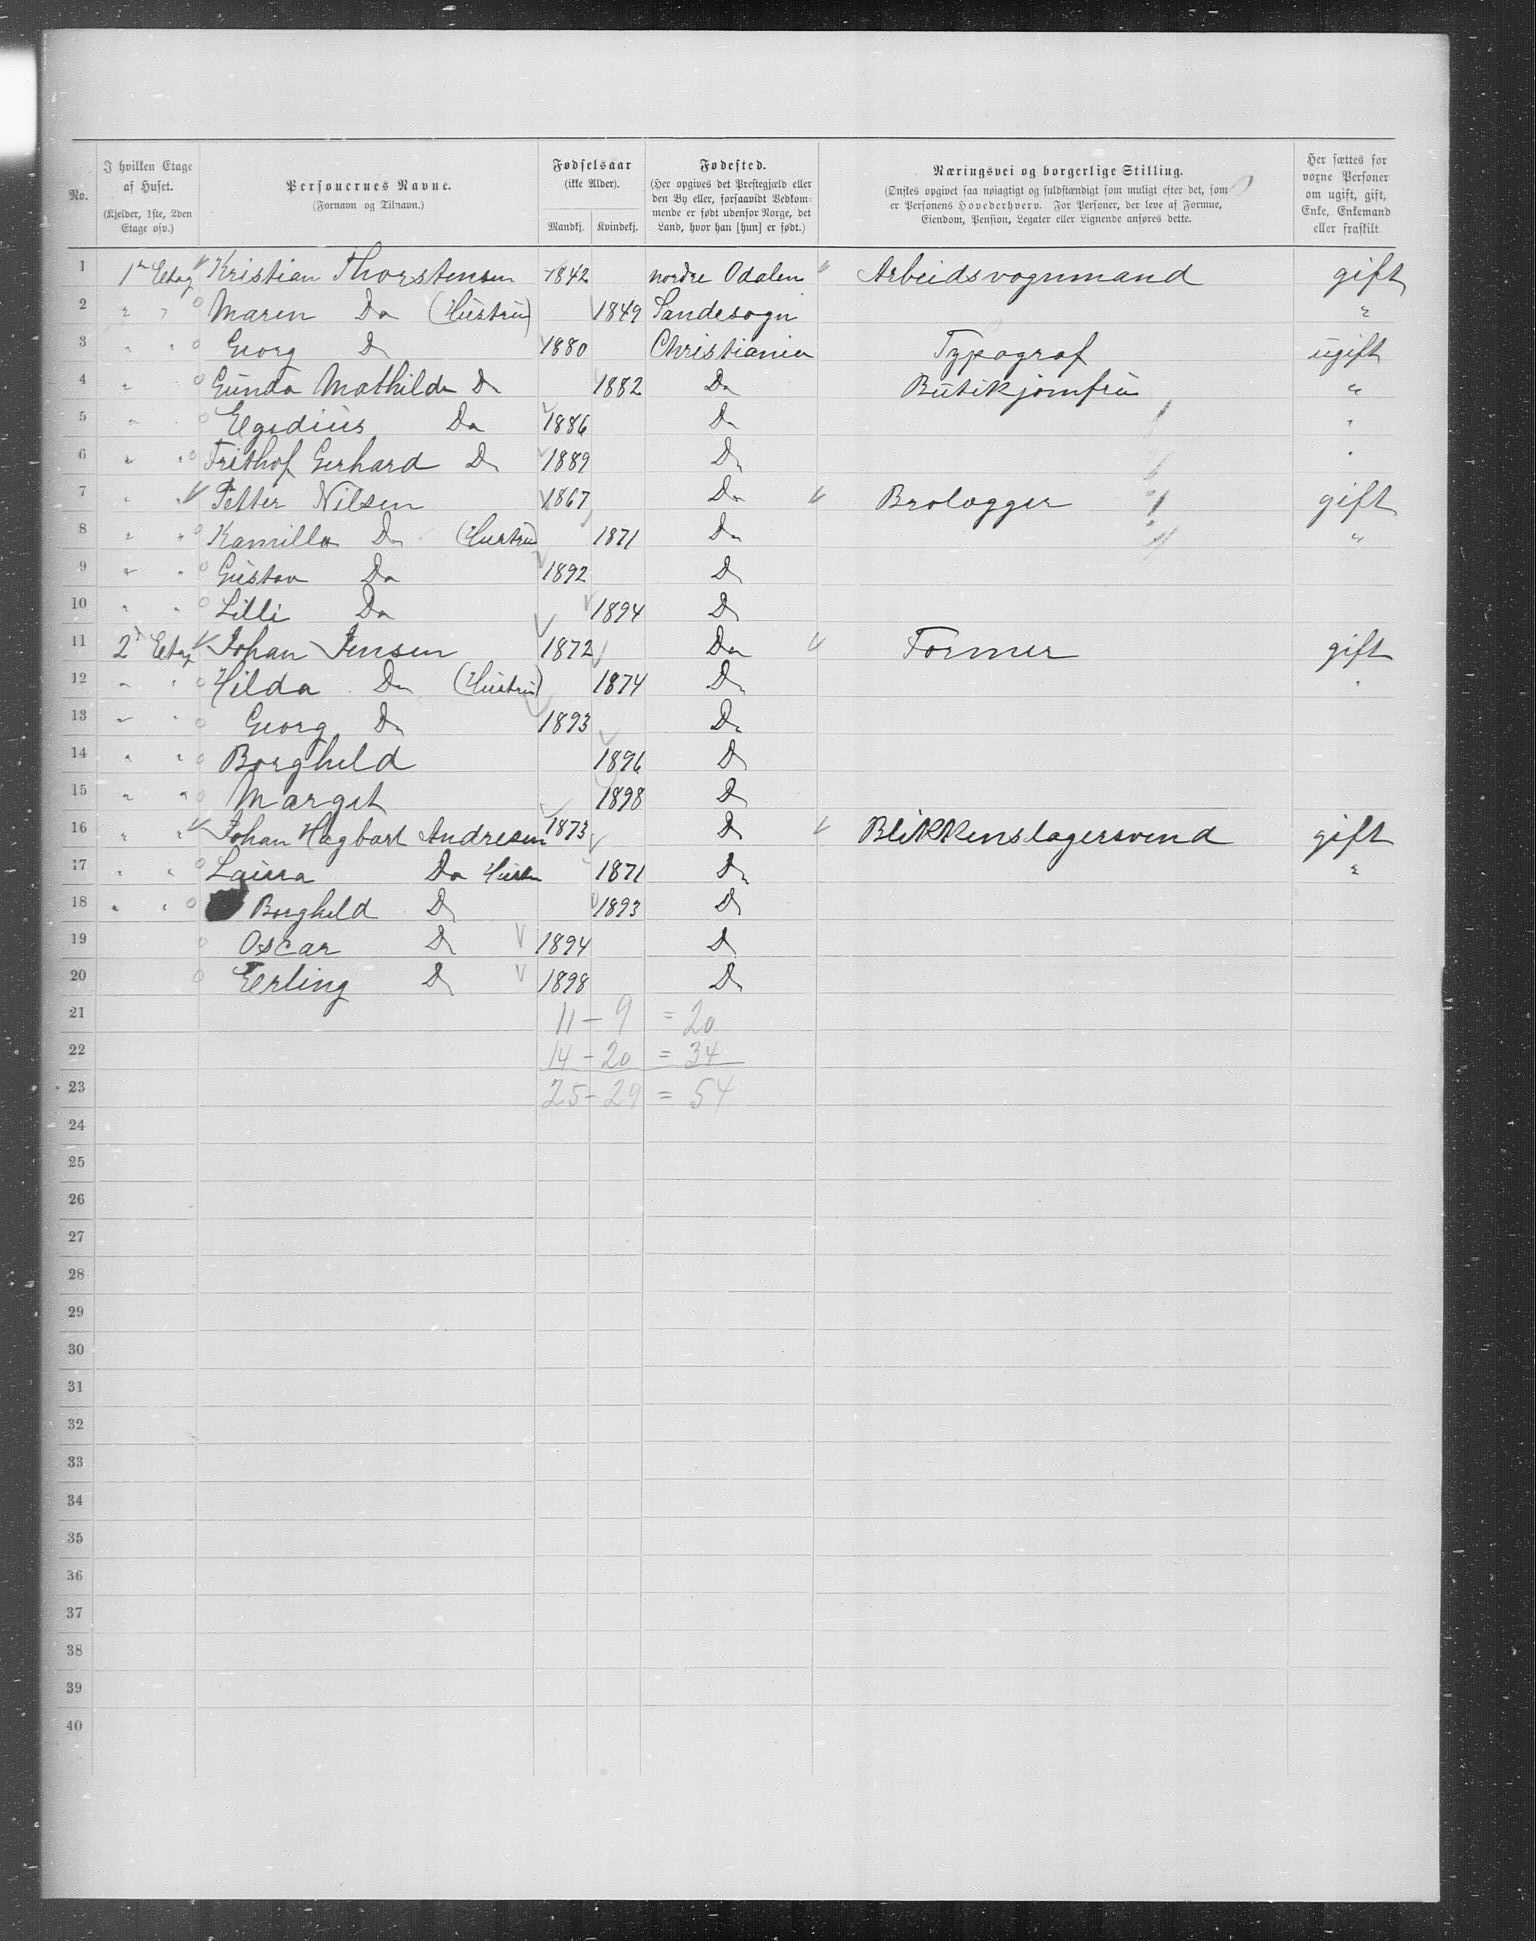 No.
I hvilken Etage af Huset. (Kjelder, 1ste, 2den Etage osv.)
Personernes Navne. (Fornavn og Tilnavn.)
Fødselsaar (ikke Alder). Mandkj. Kvindekj.
Fødested. (Her opgives det Prestegjæld eller den By eller, forsaavidt Vedkommende er født udenfor Norge, det Land, hvor han [hun] er født.)
Næringsvei og borgerlige Stilling. (Ønskes opgivet saa nøiagtigt og fuldstændigt som muligt efter det, som er Personens Hovederhverv. For Personer, der leve af Formue, Eiendom, Pension, Legater eller Lignende anføres dette.
Her sættes for vorne Personer om ugift, gift, Enke, Enkemand eller fraskilt
1 1ste Etag Kristian Thorstensen 1842 nordre Odalen Arbeidsvognmand gift
2 " " Maren Do (Hustru) 1849 Sandesogn "
3 " " Georg Do 1880 Christiania Typograf ugift
4 " " Gunda Mathilde Do 1882 Do Butikjomfru "
5 " " Egidius Do 1886 Do "
6 " " Frithof Gerhard Do 1889 Do "
7 " " Petter Nilsen 1867 Do Brolægger gift
8 " " Kamilla Do (Hustru 1871 Do "
9 " " Gustav Do 1892 Do
10 " " Lilli Do 1894 Do
11 2d Etag Johan Jensen 1872 Do Former gift
12 " " Hilda Do (Hustru) 1874 Do "
13 " " Georg Do 1893 Do
14 " " Borghild 1896 Do
15 " " Margit 1898 Do
16 " " Johan Hagbart Andresen 1873 Do Blikkenslagersvend gift
17 " " Laura Do Hustru 1871 Do "
18 " " Borghild Do 1893 Do
19 Oscar Do 1894 Do
20 Erling Do 1898 Do
21 11 - 9 = 20
22 14 - 20 = 34
23 25 - 29 = 54
24
25
26
27
28
29
30
31
32
33
34
35
36
37
38
39
40